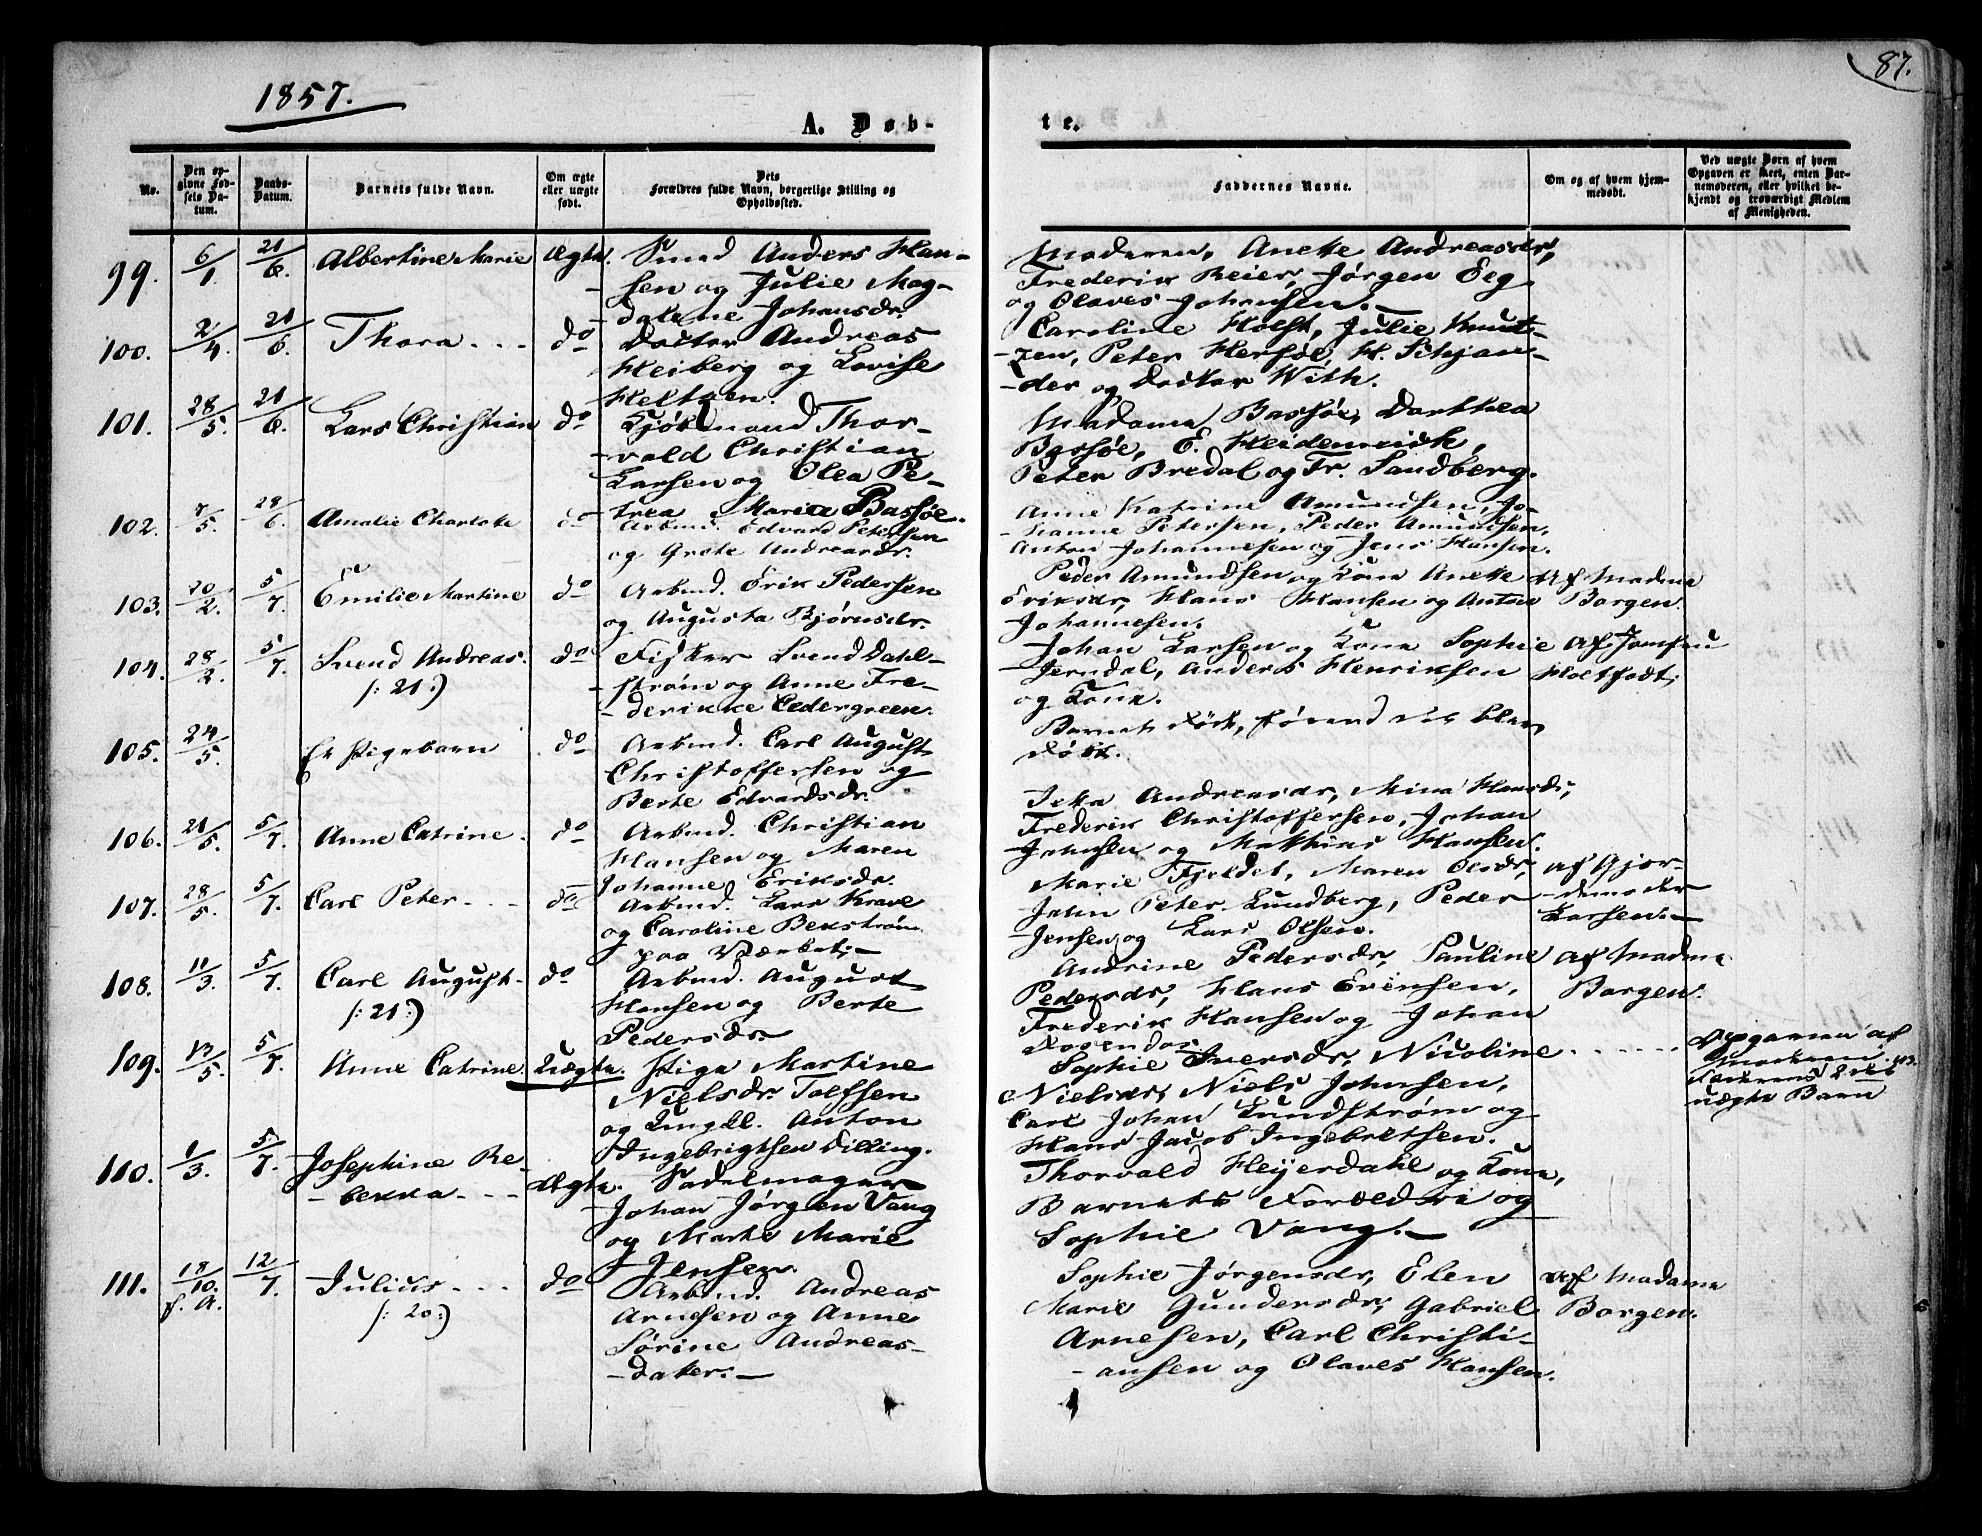 1857.
87.
A. Døb-
te.
No.
Den op-
givne Fød-
sels Da-
tum.
Daabs-
Datum.
Barnets fulde Navn.
Om ægte
eller uægte
født.
Dets
Forældres fulde Navn, borgerlige Stilling og
Opholdssted.
Faddernes Navne.
Om og af hvem hjem-
medøbt.
Ved uægte Børn af hvem
Opgaven er skeet, enten Bar-
nemoderen, eller hvilket be-
kjendt og troværdigt Medlem
af Menigheden.
99. 6/1 21/6. Albertine Marie Ægte. Smed Anders Han-
sen og Julie Mag-
dalene Johansdr.
Moderen, Anette Andreasdr,
Frederik Reier, Jørgen Eeg
og Olaves Johansen.
100. 2/4. 21/6. Thora do Doctor Andreas
Heiberg og Lovise
Heltzen.
Caroline Holst, Julie Knut-
zen, Peter Hersøe, H. Schjan-
der og Doctor With.
101. 28/5. 21/6. Lars Christian do Kjøbmand Thor-
vald Christian
Larsen og Olea Pe-
trea Marie Bassøe.
Madame Bassøe, Dorthea
Bassøe, E. Heidenreich,
Peter Bredal og Fr. Sandberg.
102. 7/5. 28/6. Amalie Charlotte do Arbmd. Edvard Petersen
og Grete Andreasdr.
Anne Katrine Amundsen, Jo-
hanne Petersen, Peder Amundsen,
Anton Johannesen og Jens Hansen.
103. 20/2. 5/7. Emilie Martine do Arbmd. Erik Pedersen
og Augusta Bjørnsdr.
Peder Amundsen og Kone Anette
Eriksdr, Hans Hansen og Anton
Johannesen.
Af Madme
Borgen.
104. 28/2. 5/7. Svend Andreas.
(: 21 :)
do Fisker Svend Dahl-
strøm og Anne Fre-
derikke Cedergreen.
Johan Larsen og Kone Sophie
Jerndal, Anders Henriksen
og Kone.
Af Jomfru
Holtfodt,
105. 24/5. Et Pigebarn do Arbmd. Carl August
Christoffersen og
Berte Edvardsdr.
Barnet døde, førend det blev
døbt.
106. 21/5. 5/7. Anne Catrine. do Arbmd. Christian
Hansen og Maren
Johanne Eriksdr.
Andreasdr, Mina Hansdr,
Frederik Christoffersen, Johan
Johnsen og Mathias Hansen.
107. 28/5. 5/7. Carl Peter do Arbmd. Lars Krave
og Caroline Bekstrøm
paa Værket.
Marie Fjeldet, Maren Olsdr,
John Peter Lundberg, Peder
Jensen og Lars Olsen.
Af Gjor-
demoder
Larsen.
108. 11/3. 5/7. Carl August
(: 21 :)
do Arbmd. August
Hansen og Berte
Pedersdr.
Andrine Pedersdr, Pauline
Pedersdr, Hans Evensen,
Frederik Hansen og Johan
Af Madme
Borgen.
109. 13/5. 5/7. Anne Catrine Uægte. Pige Martine
Nielsdr. Tolfsen
og Ungkl. Anton
Ingebrigtsen Dilling.
Sophie Iversdr, Nicoline
Nielsdr, Niels Johnsen,
Carl Johan Lundstrøm og
Hans Jacob Ingebretsen.
Opgaven af
uægte Barn
110. 1/3. 5/7. Josephine Re-
bekka
Ægte. Sadelmager
Johan Jørgen Vang
og Marte Marie
Jensen.
Thorvald Heyerdahl og Kone,
Barnets Forældre og
Sophie Vang.
111. 18/10. f. A. 12/7. Julius
(: 20 :)
do Arbmd. Andreas
Arnesen og Anne
Sørine Andreas-
datter.
Sophie Jørgensdr, Elen
Marie Gundersdr, Gabriel
Arnesen, Carl Christi-
ansen og Olaves Hansen.
Af Madame
Borgen.